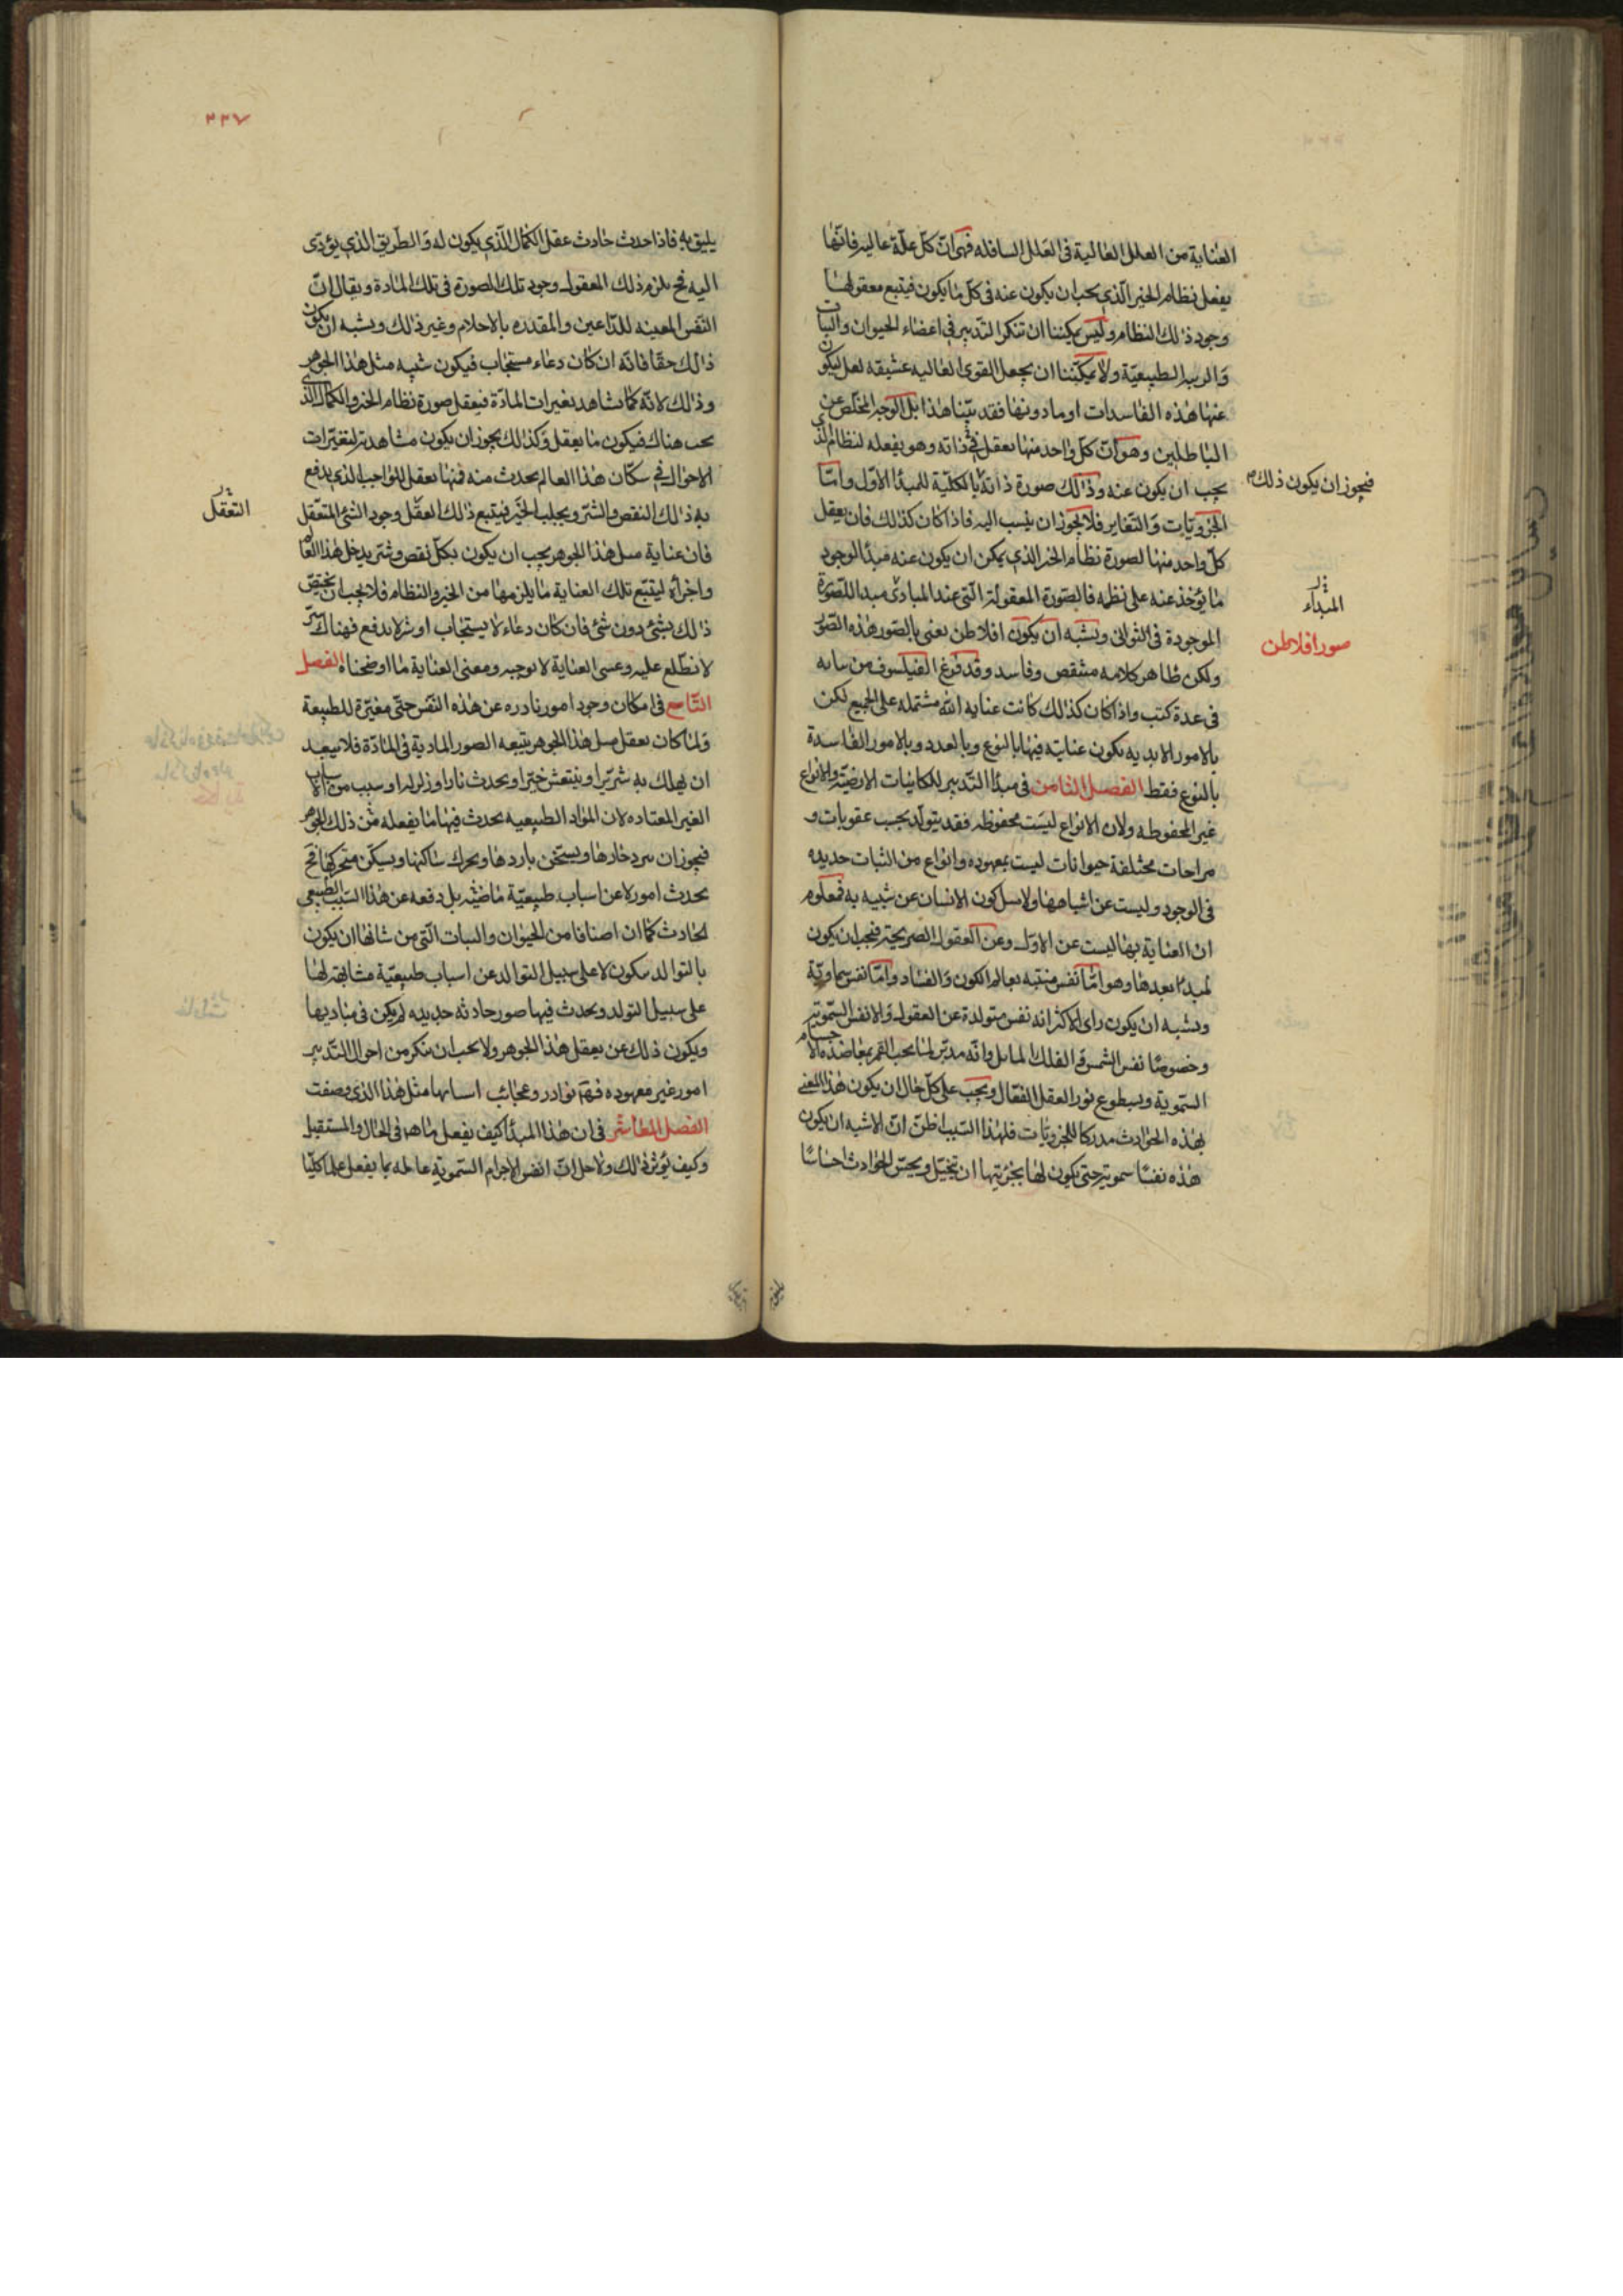 العناية من العلل العالية فى العلل السافله فهى ان كل علة عاليه فانها
يعقل نظام الخير الذى يجب ان يكون عنه فى كل ما يكون فيتبع معقولها
وجود ذلك النظام وليس يمكننا ان ننكر التدبير فى اعضاء الحيوان والنبات
والزينة الطبيعية ولا يمكننا ان يجعل القوى العاليه عشيقه لعل ليكون
عنها هذه الفاسدات او ما دونها فقد بينا هذا بل الوجه المخلص عن
الباطلين وهو ان كل واحد منها يعقل ذاته وهو يفعله لنظام الذى
يجب ان يكون عنه وذلك صورة ذاته بالكلية للمبدأ الاول واما
فيجوز ان يكون ذلك
الجزويات والتغاير فلا يجوز ان ينسب اليه فاذا كان كذلك فان يعقل
كل واحد منها لصورة نظام الخير الذى يمكن ان يكون عنه مبدأ لوجود
ما يؤخذ عنه على نظمه فالصورة المعقولة التى عند المبادى مبدا للصورة
المبداء
الموجودة فى الثوانى ويشبه ان يكون افلاطن يعنى بالصور هذه الصور
صور افلاطن
ولكن ظاهر كلامه منتقص وفاسد وقد فرغ الفيلسوف من بيانه
فى عدة كتب واذا كان كذلك كانت عنايه الله مشتمله على الجميع لكن
بالامور الابديه يكون عنايته فيها بالنوع وبالعدد وبالامور الفاسدة
بالنوع فقط الفصل الثامن فى مبدأ التدبير للكاينات الارضية والانواع
غير المحفوظه ولان الانواع ليست محفوظه فقد يتولد بحسب عقوبات و
مزاجات مختلفة حيوانات ليست بمعهوده وانواع من النبات جديده
فى الوجود وليست عن اشباهها ولا مثل كون الانسان عن شبيه به فمعلوم
ان العناية بها ليست عن الاول وعن العقول الصريحة فيجب ان يكون
لمبدأ بعدها وهو اما نفس منبثه بعالم الكون والفساد واما نفس سماوية
ويشبه ان يكون راى الاكثر انه نفس متولدة عن العقول والانفس السموية
وخصوصا نفس الشمس و الفلك المايل وانه مدبر لما تحت القمر بمعاضدة الاجسام
السموية وبسطوع نور العقل الفعال ويجب على كل حال ان يكون هذا المعنى
بهذه الحوادث مدركا للجزويات فلهذا السبب اظن ان الاشبه ان يكون
هذه نفسا سموية حتى يكون لها بجرميتها ان تتخيل ويحس الحوادث احساسا
٣٣٧
يليق به فاذا حدث حادث عقل الكمال الذى يكون له والطريق الذى يؤدى
اليه فح يلزم ذلك المعقول وجود تلك الصورة فى تلك المادة ويقال ان
النفس المعينه للداعين والمقدره بالاحلام وغير ذلك ويشبه ان يكون
ذلك حقا فانه ان كان دعاء مستجاب فيكون شبيه مثل هذا الجوهر
وذلك لانه كما تشاهد تغيرات المادة فيعقل صورة نظام الخير والكمال الذى
يجب هناك فيكون ما يعقل وكذلك يجوز ان يكون مشاهدته لتغيرات
الاحوال فى سكان هذا العالم يحدث منه فمنها يعقل للواجب الذى يدفع
به ذلك النقص والشر ويجلب الخير فيتبع ذلك العقل وجود الشئ المتعقل
التعقل
فان عناية مثل هذا الجوهر يجب ان يكون بكل نقص وشر يدخل هذا العالم
واجزائه ليتبع تلك العناية ما يلزمها من الخير والنظام فلا يجب ان يختص
ذلك بشئ دون شئ فان كان دعاء لا يستجاب او شر لا يدفع فهناك سر
لا نطلع عليه وعسى العناية لا توجبه ومعنى العناية ما اوضحناه الفصل
التاسع فى امكان وجود امور نادره عن هذه النفس حتى مغيرة للطبيعة
ولما كان تعقل مثل هذا الجوهر يتبعه الصور المادية فى المادة فلا يبعد
ان يهلك به شرير او ينتعش خير او يحدث نار او زلزله او سبب من الاسباب
الغير المعتاده لان المواد الطبيعيه يحدث فيها ما يفعله من ذلك الجوهر
فيجوز ان يبرد حارها ويستخن باردها ويحرك ساكنها ويسكن متحركها فح
يحدث امور لا عن اسباب طبيعية ماضية بل دفعه عن هذا السبب الطبيعى
الحادث كما ان اصنافا من الحيوان والنبات التى من شانها ان يكون
بالتوالد يكون لا على سبيل التوالد عن اسباب طبيعية مشابهة لها
على سبيل التولد ويحدث فيها صور حادثه جديده لم يكن فى مباديها
ويكون ذلك عن يعقل هذا الجوهر ولا يجب ان ينكر من احوال التدبير
امور غير معهوده فهنا نوادر وعجائب اسبابها مثل هذا الذى وصفت
الفصل العاشر فى ان هذا المبدأ كيف يفعل ما هو فى الحال والمستقبل
وكيف يؤثر ذلك ولاجل ان انفس الاجرام السموية عالمه بما يفعل علما كليا